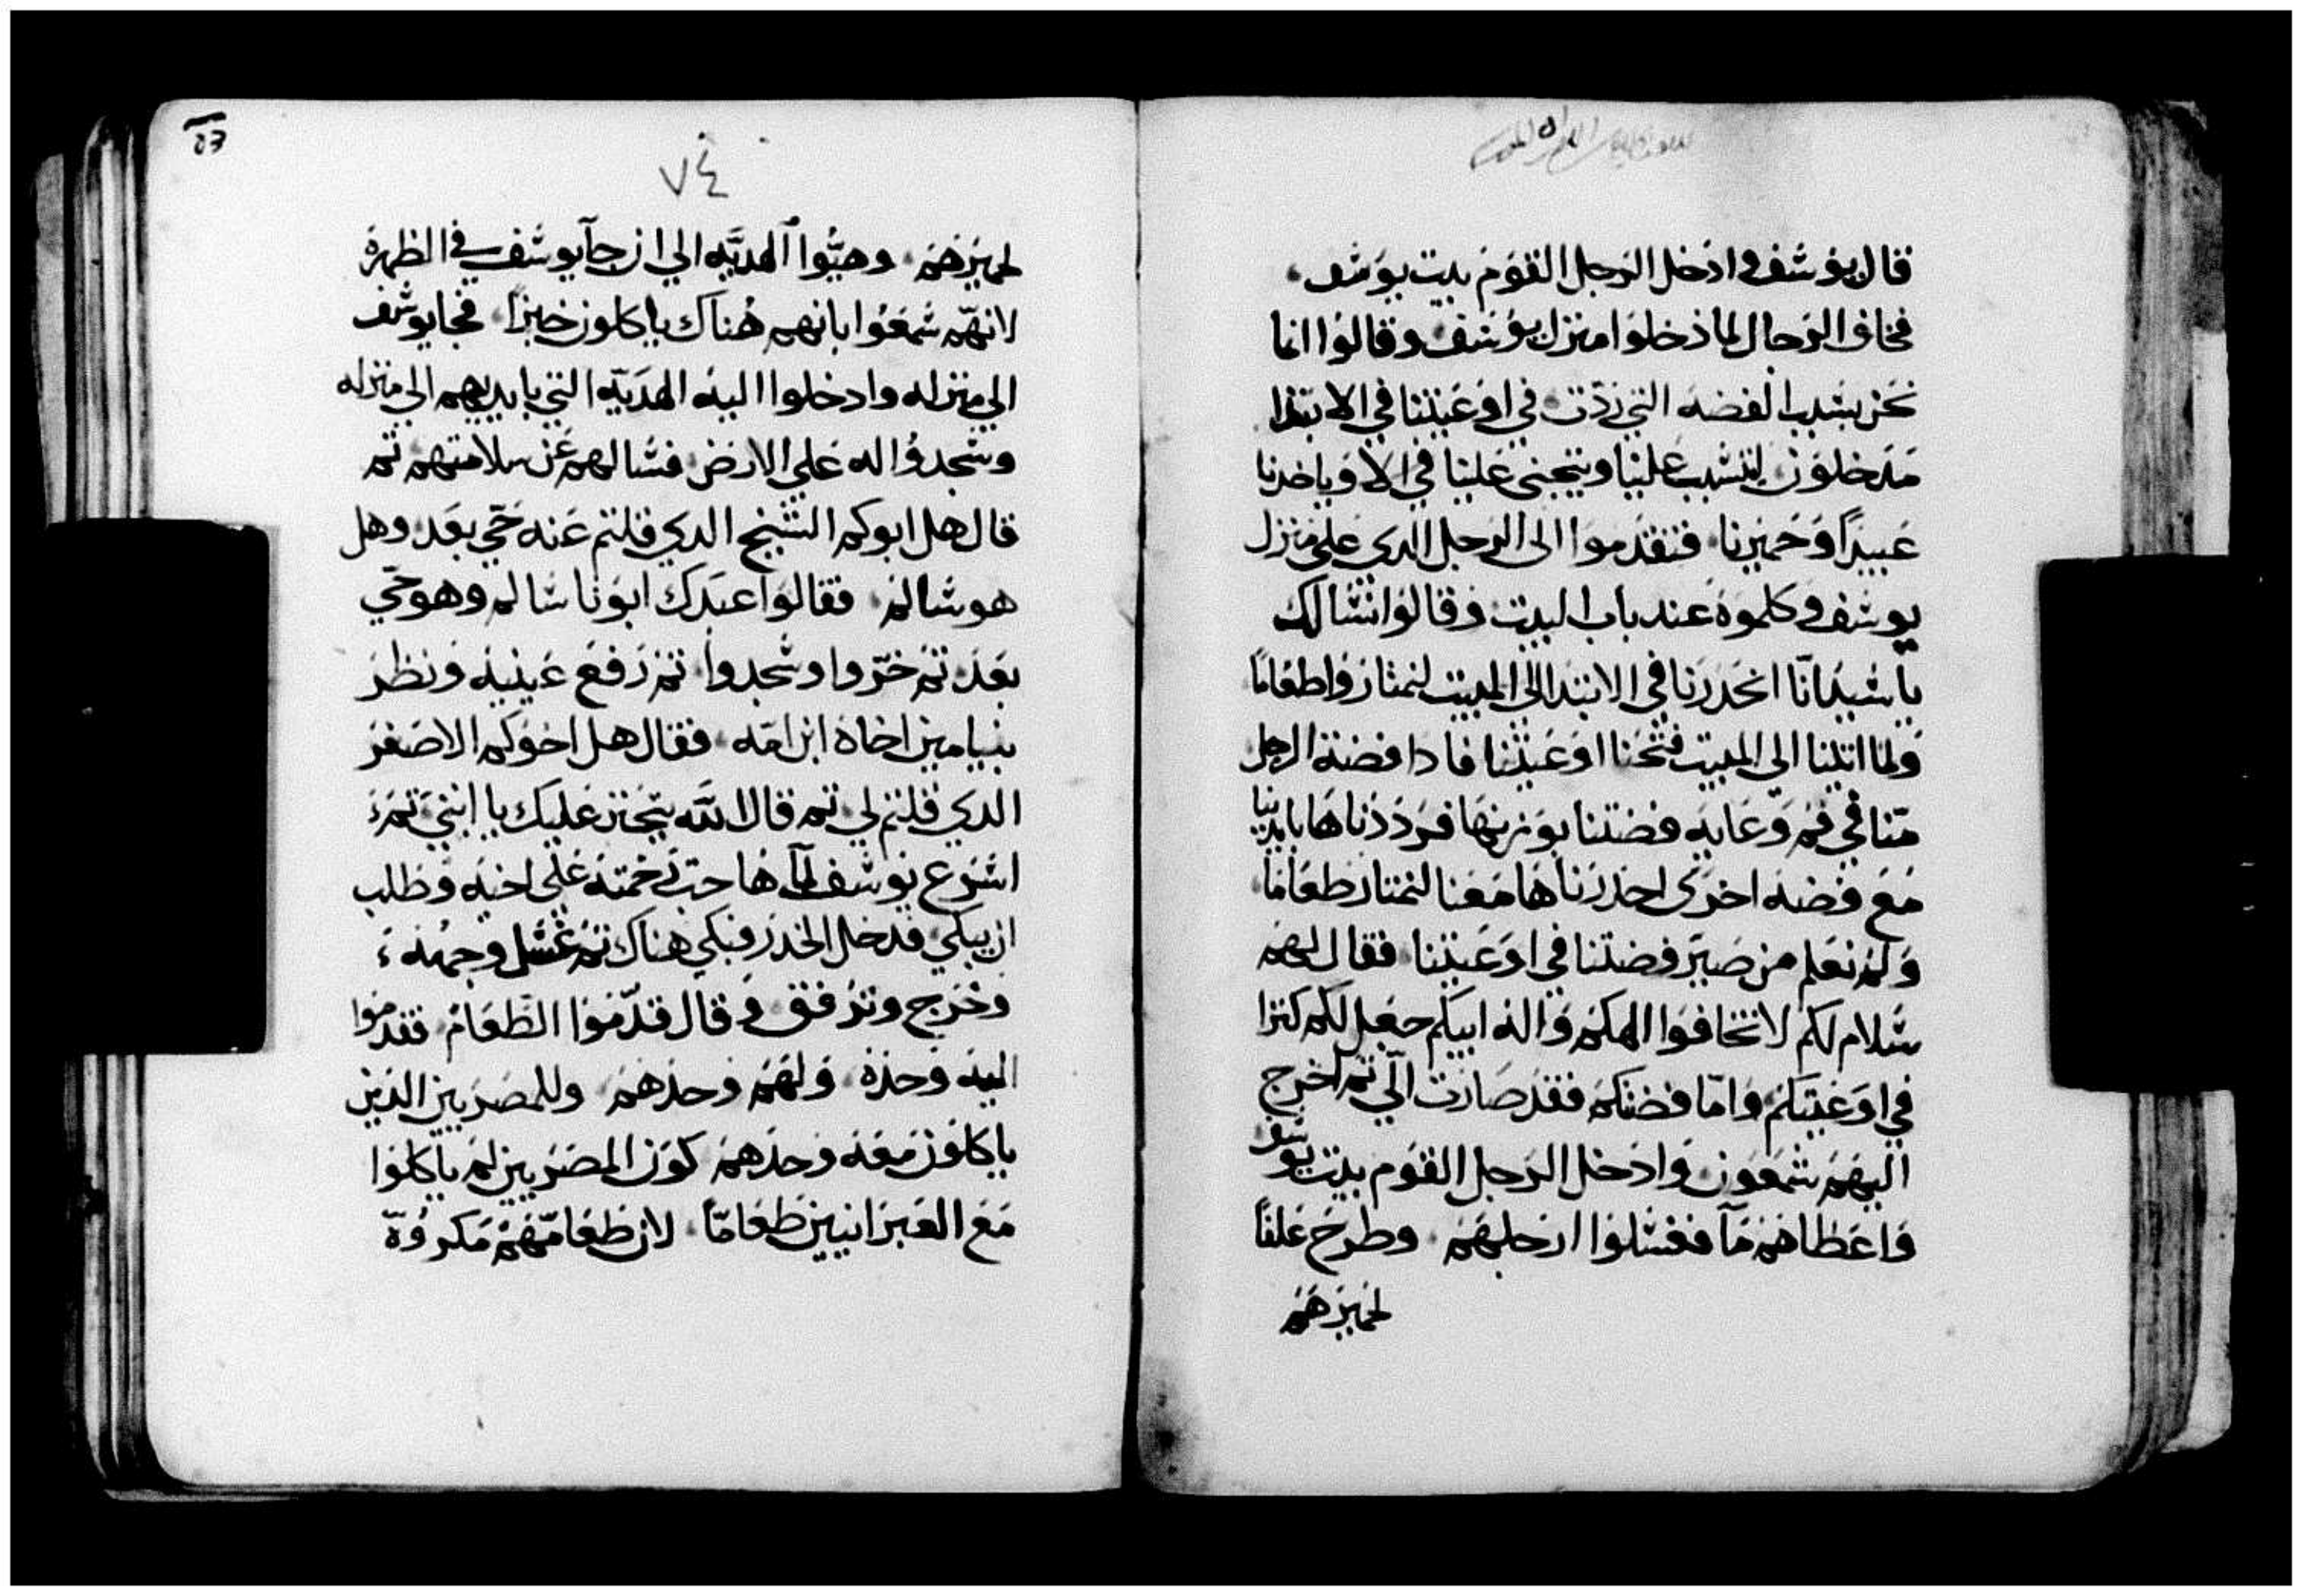 قال يوشف وادخل الرجل القوم بيت يوشف
فخاف الرجال لما دخلوا منزل يوشف وقالوا انما
نحن بشبب الفضه التي ردت في اوعيتنا في الابتدا
مدخلون ليتشبب علينا ويتجنى علينا في الاويا خدنا
عبيدًا وحميرنا فتقدموا الى الرجل الدي على منزل
يوشف وكلموه عند باب البيت وقالوا نشالك
يا شيدانا انحدرنا في الابتدا الى المبيت لنمتار واطعاما
ولما اتينا الي المبيت فتحنا اوعيتنا فادا فضة الرجل
منا في فم وعايه فضتنا بوزنها فرددناها بايدينا
مع فضه اخرى احدرناها معنا لنمتار طعاما
ولم نعلم من صير فضتنا في اوعيتنا فقال لهم
شلام لكم لا تخافوا الهكم واله ابيكم جعل لكم كنزا
في اوعيتكم واما فضتكم فقد صارت الي تم اخرج
اليهم شمعون وادخل الرجل القوم بيت يوشو
واعطاهم مآ فغشلوا ارجلهم وطرح علفاً
لحميرهم
٧٤
لحميرهم وهيُّوا الهديَّه الي ان جآ يوشف في الظهرة
لانهم شمعوا بانهم هناك ياكلون خبزا فجا يوشف
الي منزله وادخلوا اليه الهديّه التي بايديهم الي منزله
وشجدوا له على الارض فشالهم عن سلامتهم تم
قال هل ابوكم الشيخ الدي قلتم عنه حي بعد وهل
هو شالم فقالوا عبدك ابونا شالم وهو حي
بعد تم خرّوا وشجدوا تم رفع عينيه ونظر
بنيامين اخاه ابن امه فقال هل اخوكم الاصغر
الدي قلتم لي تم قال الله يتحنن عليك يا ابني تمر
اشرع يوشف لما هاجت رحمته على اخيه وطلب
ان يبكي فدخل الخدر فبكي هناك تم غشل وجهه
وخرج وترفق وقال قدّموا الطعام فقدموا
اليه وحده ولهم وحدهم وللمصريين الذين
ياكلون معه وحدهم كون المصريين لم ياكلوا
مع العبرانيين طعامًا لان طعامهم مكروه